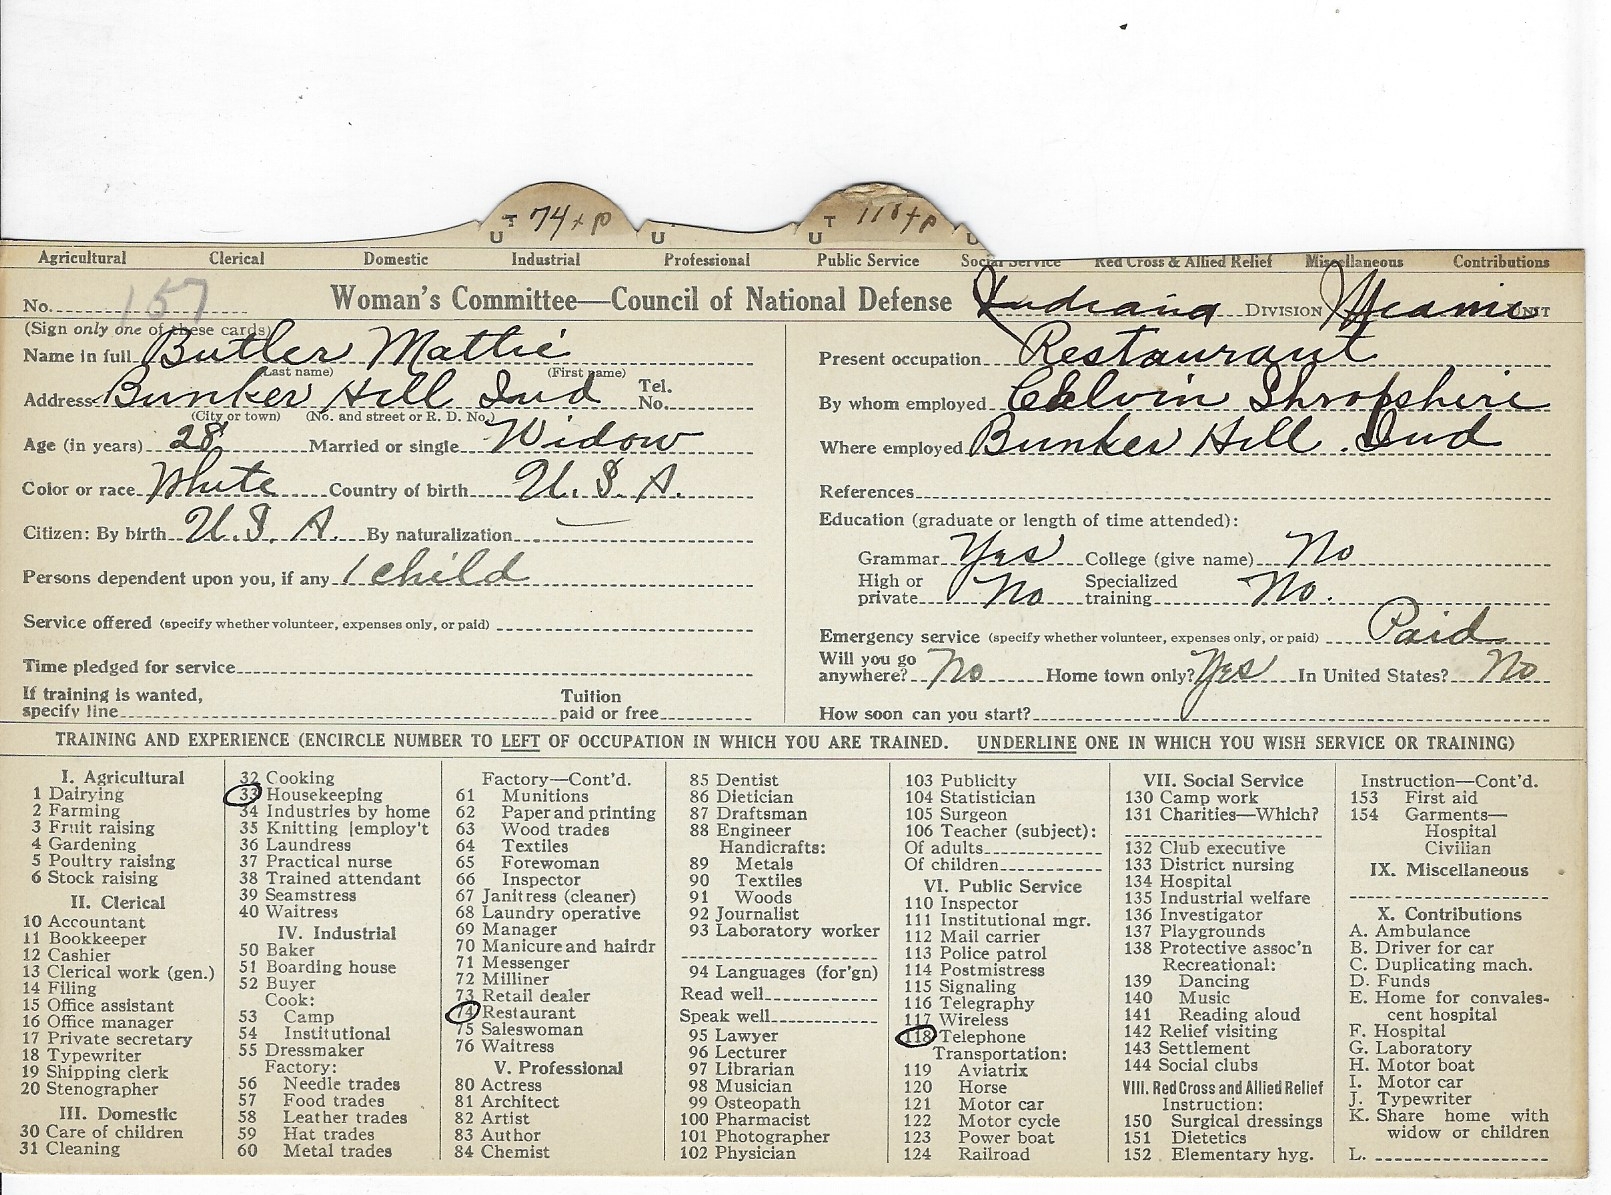 T 74 + P T 118 + P
U U U U
Agricultural Clerical Domestic Industrial Professional Public Service Social Service Red Cross & Allied Relief Miscellaneous Contributions
No. 157 Woman's Committee—Council of National Defense Indiana DIVISION Miami UNIT
(Sign only one of these cards)
Name in full Butler Mattie
(Last name) (First name)
Address Bunker Hill Ind Tel. No.
(City or town) (No. and street or R. D. No.)
Age (in years) 28 Married or single Widow
Color or race White Country of birth U. S. A.
Citizen: By birth U. S. A. By naturalization —
Persons dependent upon you, if any 1 child
Service offered (specify whether volunteer, expenses only, or paid)
Time pledged for service
If training is wanted, Tuition
specify line paid or free
Present occupation Restaurant
By whom employed Calvin Shropshire
Where employed Bunker Hill. Ind
References
Education (graduate or length of time attended):
Grammar Yes College (give name) No
High or Specialized
private No training No.
Emergency service (specify whether volunteer, expenses only, or paid) Paid
Will you go
anywhere? No Home town only? Yes In United States? No
How soon can you start?
TRAINING AND EXPERIENCE (ENCIRCLE NUMBER TO LEFT OF OCCUPATION IN WHICH YOU ARE TRAINED. UNDERLINE ONE IN WHICH YOU WISH SERVICE OR TRAINING)
I. Agricultural
1 Dairying
2 Farming
3 Fruit raising
4 Gardening
5 Poultry raising
6 Stock raising
II. Clerical
10 Accountant
11 Bookkeeper
12 Cashier
13 Clerical work (gen.)
14 Filing
15 Office assistant
16 Office manager
17 Private secretary
18 Typewriter
19 Shipping clerk
20 Stenographer
III. Domestic
30 Care of children
31 Cleaning
32 Cooking
33 Housekeeping
34 Industries by home
35 Knitting [employ't
36 Laundress
37 Practical nurse
38 Trained attendant
39 Seamstress
40 Waitress
IV. Industrial
50 Baker
51 Boarding house
52 Buyer
Cook:
53 Camp
54 Institutional
55 Dressmaker
Factory:
56 Needle trades
57 Food trades
58 Leather trades
59 Hat trades
60 Metal trades
Factory—Cont'd.
61 Munitions
62 Paper and printing
63 Wood trades
64 Textiles
65 Forewoman
66 Inspector
67 Janitress (cleaner)
68 Laundry operative
69 Manager
70 Manicure and hairdr
71 Messenger
72 Milliner
73 Retail dealer
74 Restaurant
75 Saleswoman
76 Waitress
V. Professional
80 Actress
81 Architect
82 Artist
83 Author
84 Chemist
85 Dentist
86 Dietician
87 Draftsman
88 Engineer
Handicrafts:
89 Metals
90 Textiles
91 Woods
92 Journalist
93 Laboratory worker
94 Languages (for'gn)
Read well
Speak well
95 Lawyer
96 Lecturer
97 Librarian
98 Musician
99 Osteopath
100 Pharmacist
101 Photographer
102 Physician
103 Publicity
104 Statistician
105 Surgeon
106 Teacher (subject):
Of adults
Of children
VI. Public Service
110 Inspector
111 Institutional mgr.
112 Mail carrier
113 Police patrol
114 Postmistress
115 Signaling
116 Telegraphy
117 Wireless
118 Telephone
Transportation:
119 Aviatrix
120 Horse
121 Motor car
122 Motor cycle
123 Power boat
124 Railroad
VII. Social Service
130 Camp work
131 Charities—Which?
132 Club executive
133 District nursing
134 Hospital
135 Industrial welfare
136 Investigator
137 Playgrounds
138 Protective assoc'n
Recreational:
139 Dancing
140 Music
141 Reading aloud
142 Relief visiting
143 Settlement
144 Social clubs
VIII. Red Cross and Allied Relief
Instruction:
150 Surgical dressings
151 Dietetics
152 Elementary hyg.
Instruction—Cont'd.
153 First aid
154 Garments—
Hospital
Civilian
IX. Miscellaneous
X. Contributions
A. Ambulance
B. Driver for car
C. Duplicating mach.
D. Funds
E. Home for convales-
cent hospital
F. Hospital
G. Laboratory
H. Motor boat
I. Motor car
J. Typewriter
K. Share home with
widow or children
L.